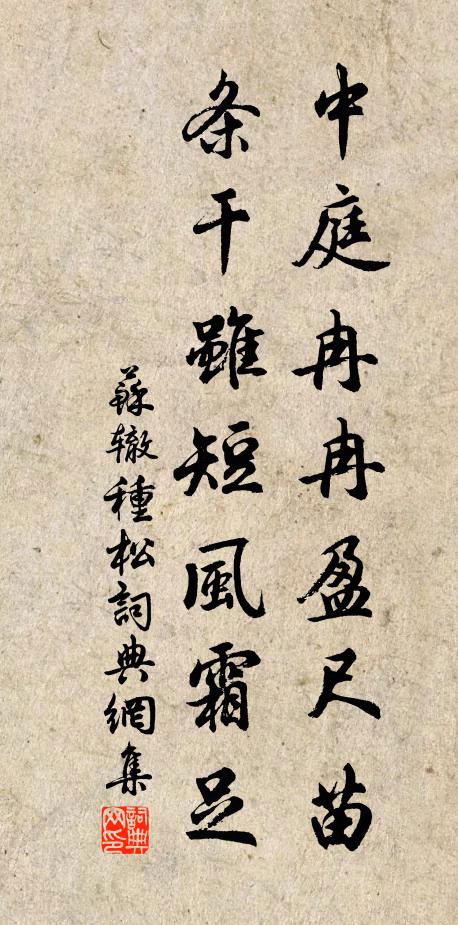 中庭冉冉盈尺苗
条干雖短風霜足
蘇辙種松詞典網集
詞典网印